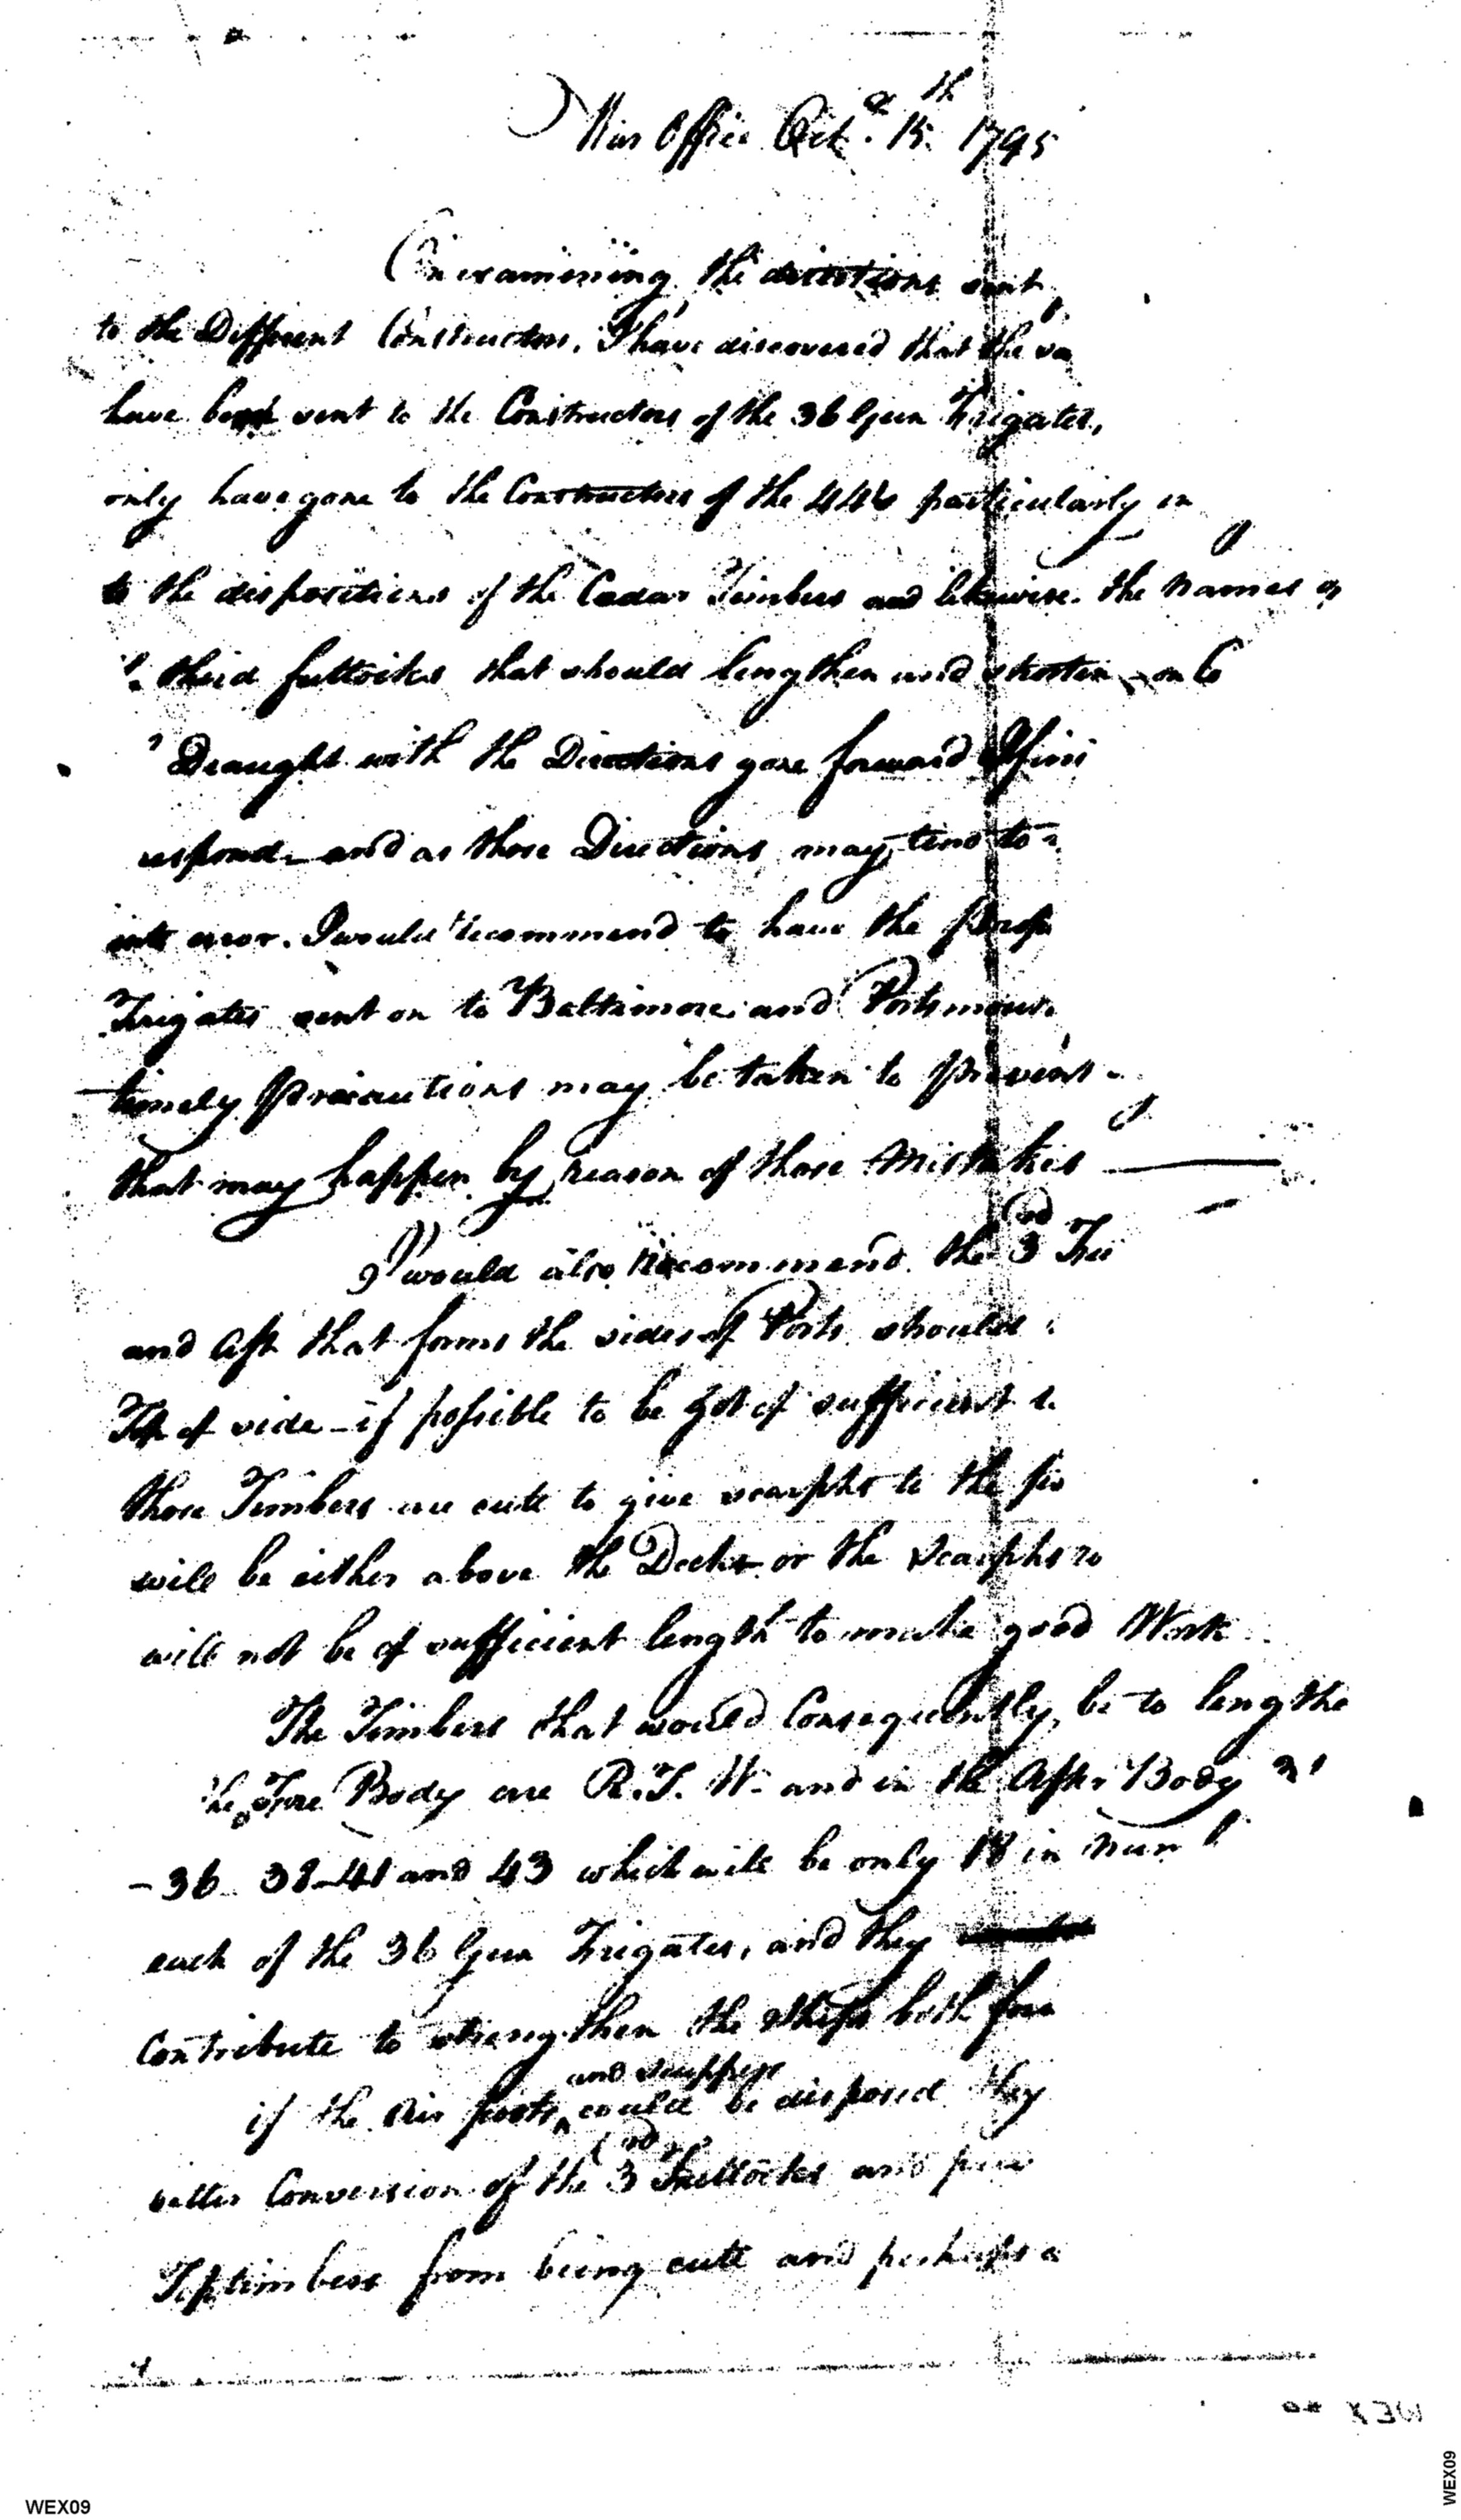 War Office Oct.r 15.th 1795
On examining the directions sent
to the Different Constructors, I have discovered that the sa
have been sent to the Constructors of the 36 Gun Frigates,
only have gone to the Constructors of the 44s particularly in
to the dispositions of the Cedar Timbers and likewise the names of
third futtocks that should lengthen and shorten on
Draught with the Directions gone forward I find
respond and as those Directions may tend to
into error. I would recommend to have the prop
Frigates sent on to Baltimore and Portsmou
timely precautions may be taken to prevent
that may happen by reason of those Mistakes
I would also recommend the 3rd Fu
and aft that forms the sides of Ports should
Top of side – if possible to be got of sufficient
those Timbers are cutt to give scarphs to the
will be either above the Decks or the scarphs
will not be of sufficient length to make good Work
The Timbers that would Consequently be to lengthe
the Fore Body are R. T. W. and in the After Body
– 36 – 38 – 41 and 43 which will be only 18 in num
each of the 36 Gun Frigates, and they
Contribute to strengthen the Ships both fore
and scuppers
if the Air ports ^ could be disposed they
better Conversion of the 3rd Futtocks and
Toptimbers from being cutt and perhaps a
WEX09
WEX09